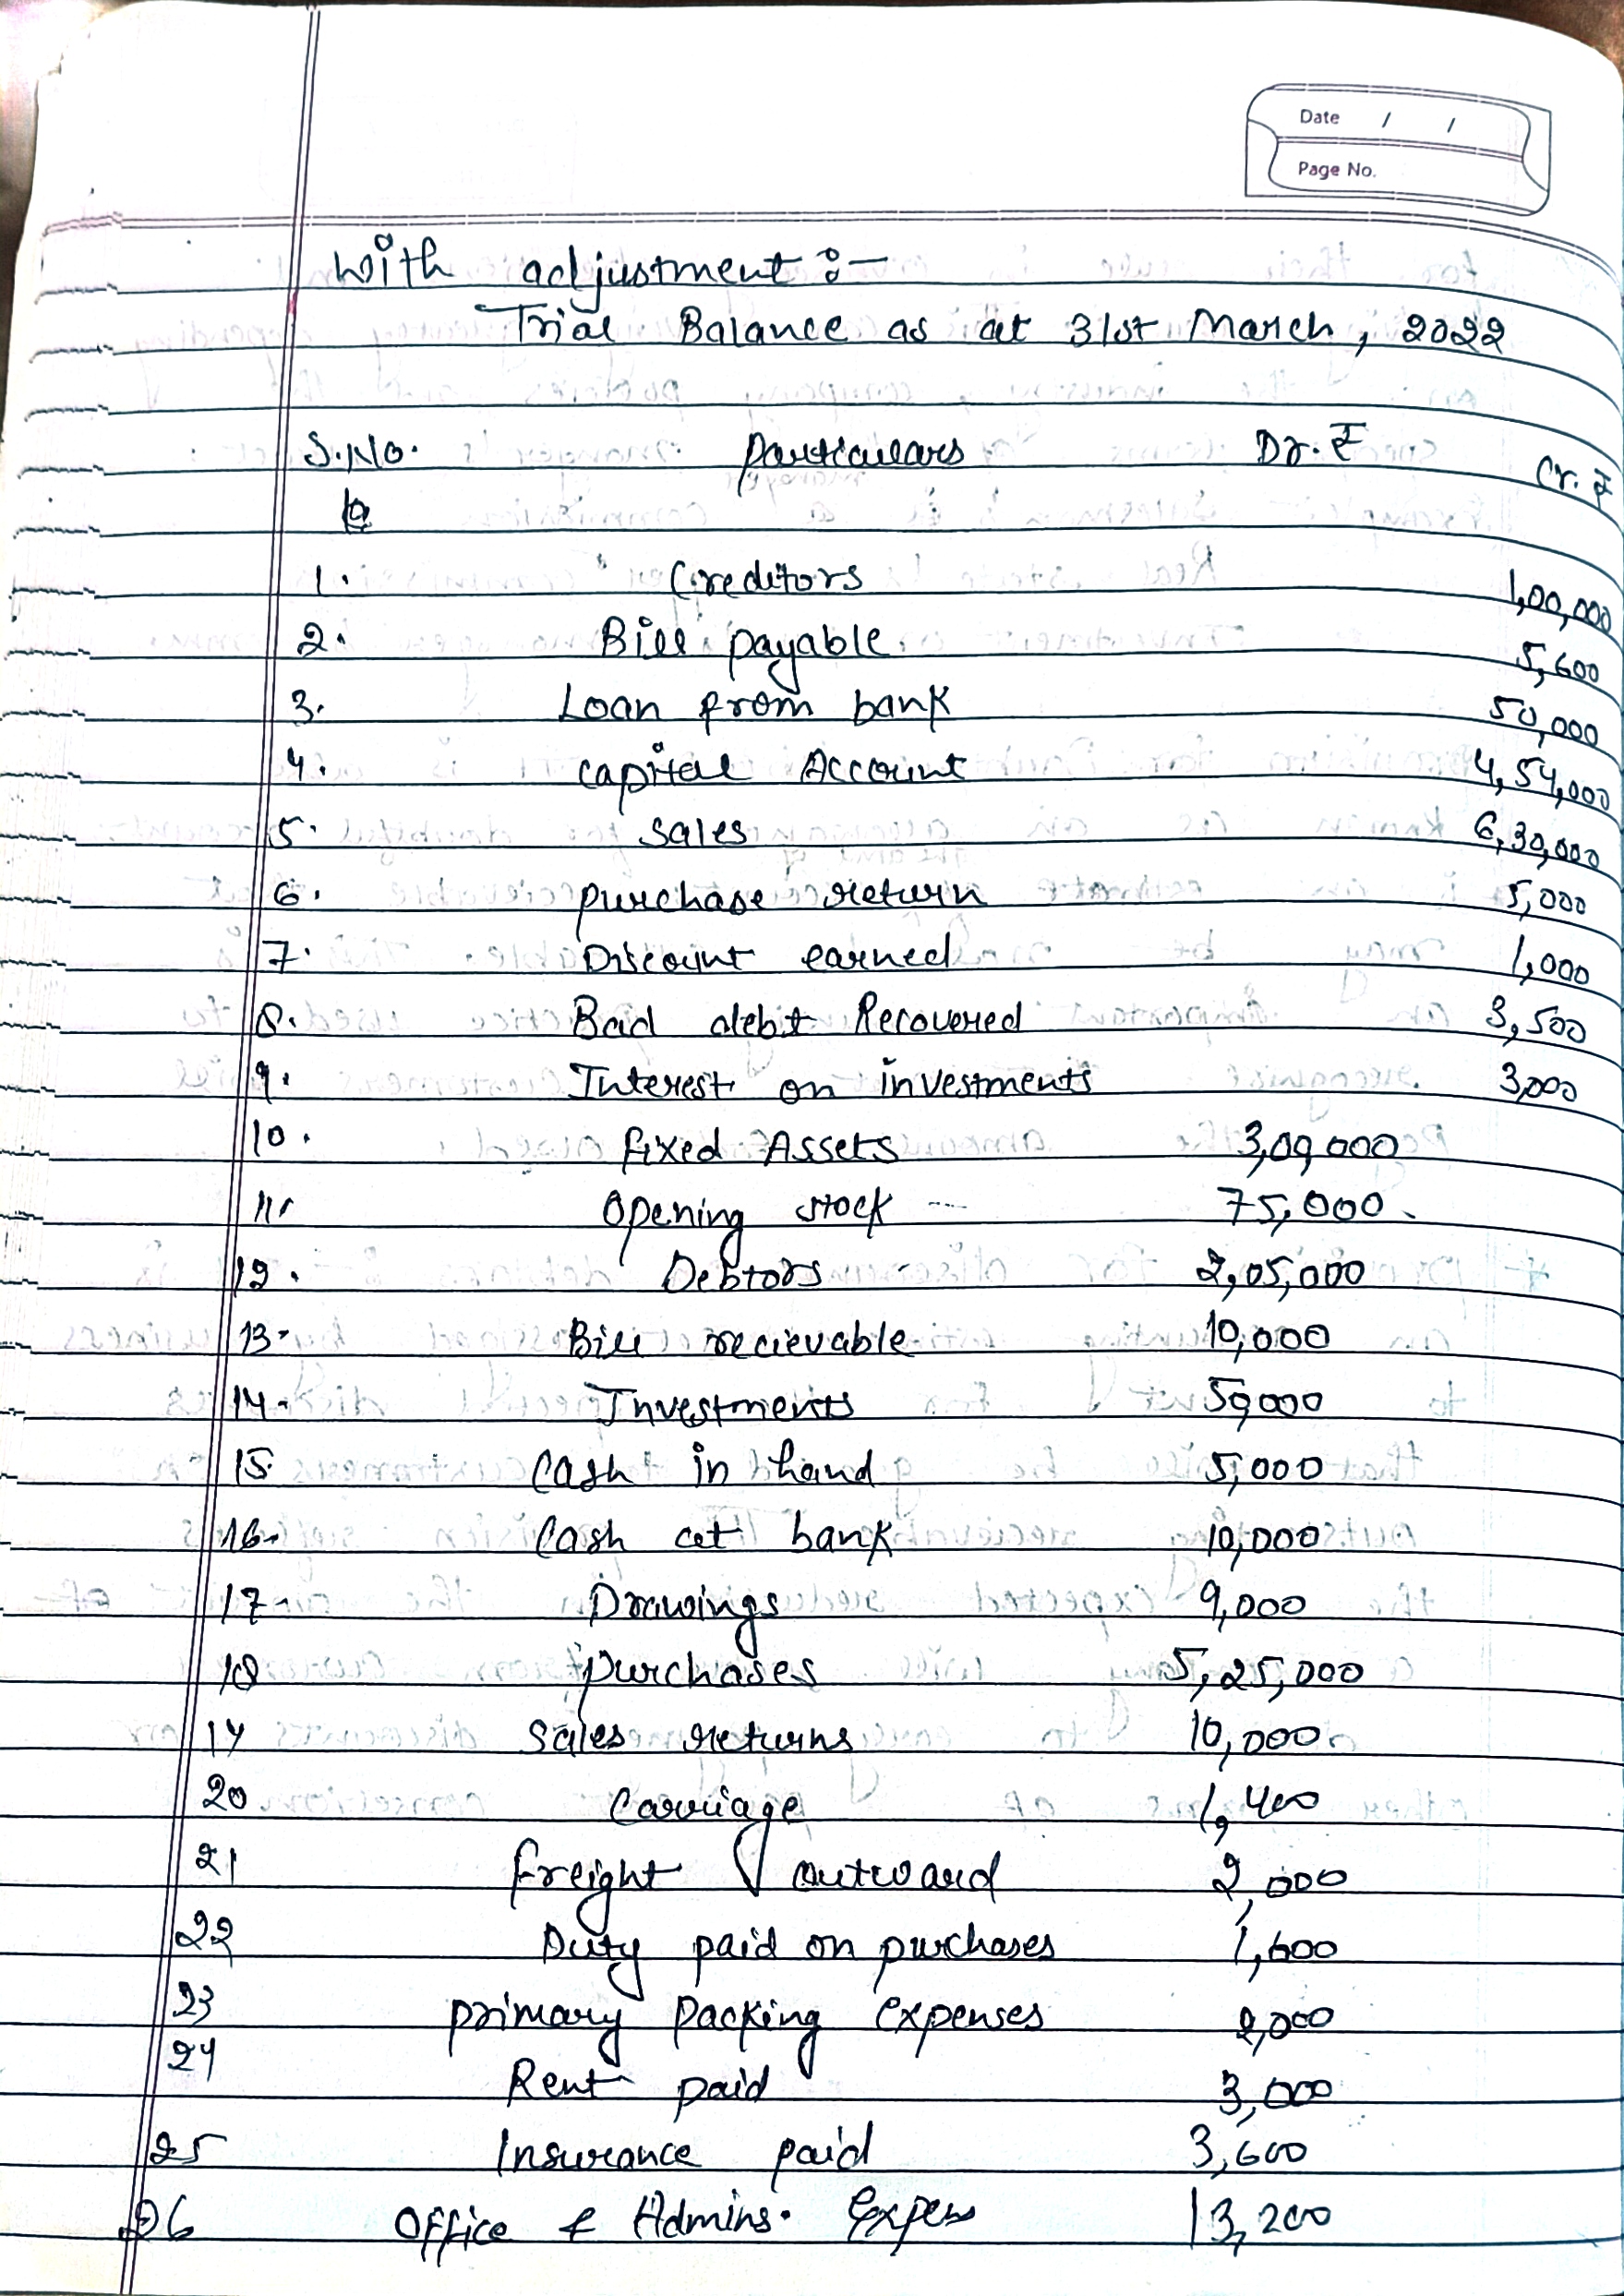 Date / /
Page No.
With adjustment :-
Trial Balance as at 31st March, 2022
S.No. Particulars Dr. ₹ Cr. ₹
1. Creditors 1,00,000
2. Bill payable 5,600
3. Loan from bank 50,000
4. Capital Account 4,54,000
5. Sales 6,30,000
6. purchase return 5,000
7. Discount earned 1,000
8. Bad debt Recovered 3,500
9. Interest on investments 3,000
10. fixed Assets 3,09,000
11. Opening stock 75,000
12. Debtors 2,05,000
13. Bill recievable 10,000
14. Investments
15. Cash in hand 5,000
16. Cash at bank 10,000
17. Drawings 9,000
18 purchases 5,25,000
19 Sales returns 10,000
20 Carriage 1,400
21 freight outward 2,000
22 Duty paid on purchases 1,600
23 primary packing expenses 2,000
24 Rent paid 3,000
25 Insurance paid 3,600
26 Office & Admins. Expens 13,200